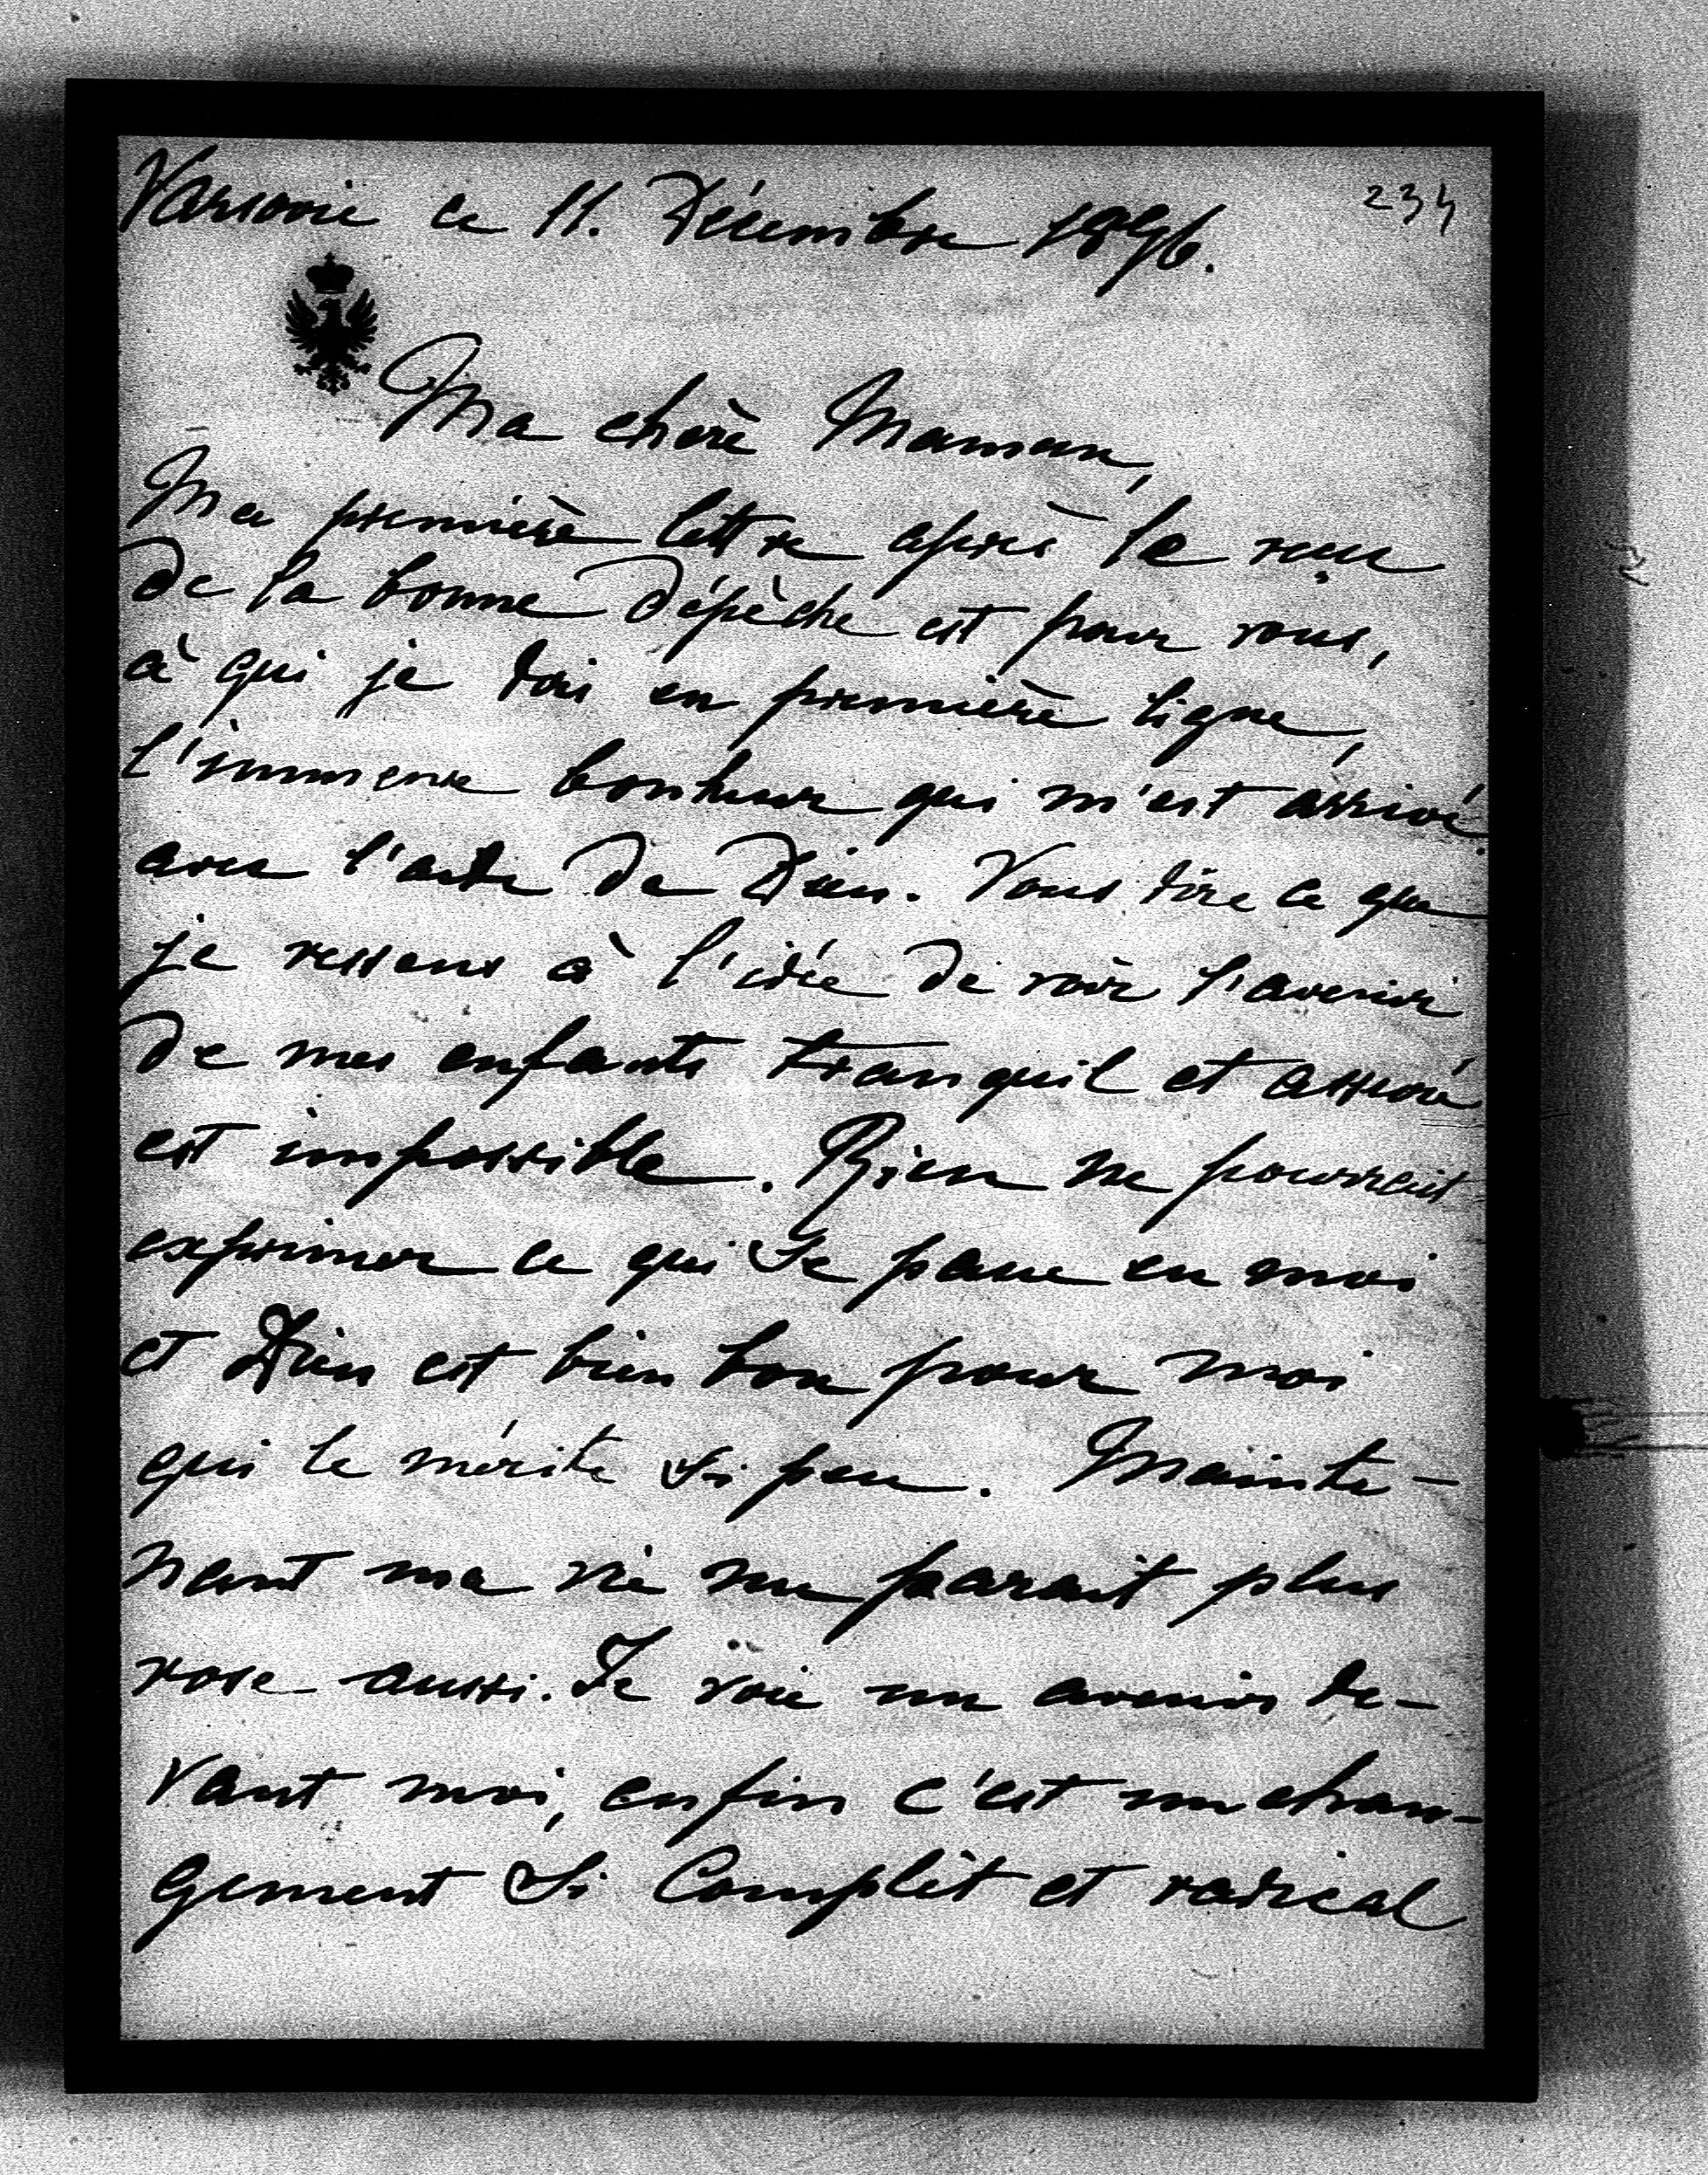 Varsovie ce 11. Décembre 1896.
234
Ma chère Maman,
Ma première lettre après le reçu
de la bonne dépèche est pour vous,
à qui je dois en première ligne,
l'immense bonheur qui m'est arrivé
avec l'aide de Dieu. Vous dire ce que
je ressens à l'idée de voir l'avenir
de mes enfants tranquil et assuré
est impossible. Rien ne pourrait
exprimer ce qui se passe en moi
et Dieu est bien bon pour moi
qui le mérite si peu. Mainte-
nant ma vie me parait plus
rose aussi. Je vois un avenir de-
vant moi, enfin c'est un chan-
gement si complèt et radical